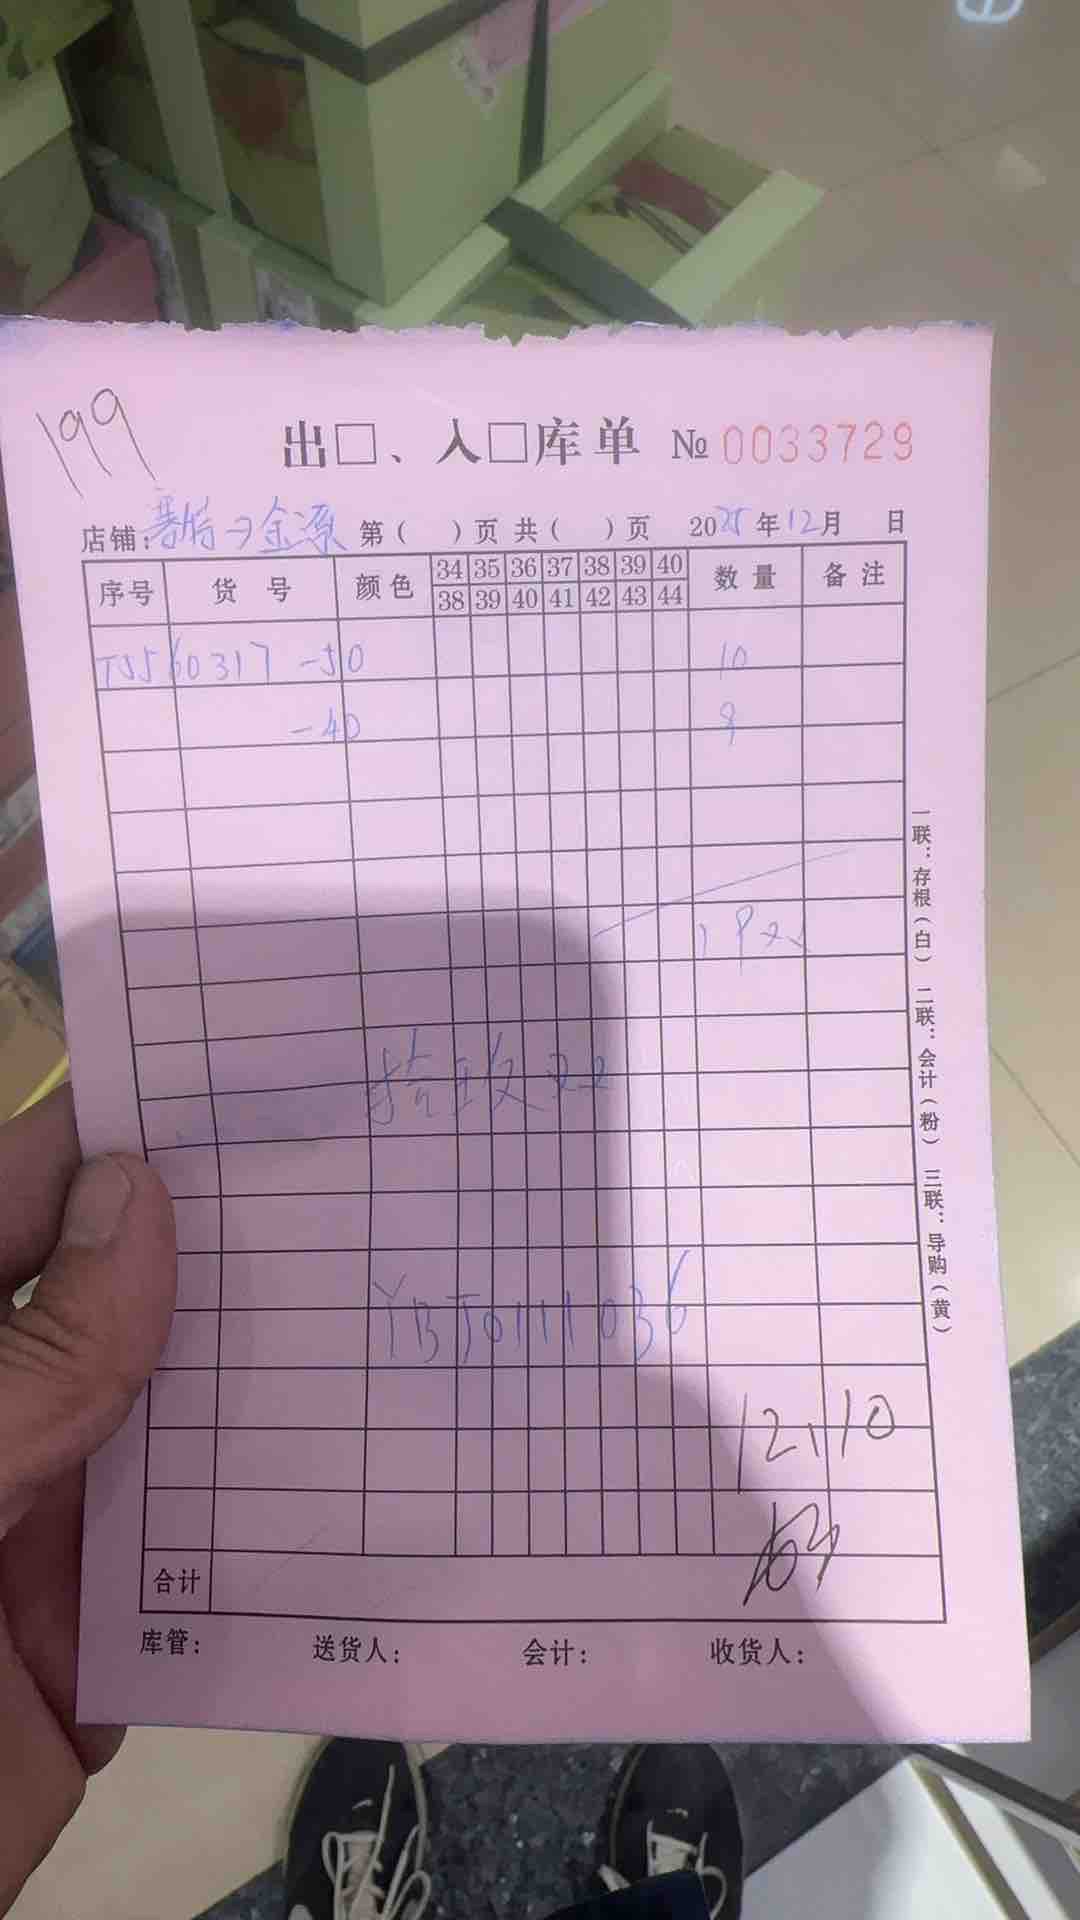 199
出□、入□库单 № 0033729
店铺: 赛特→金源 第( )页 共( )页 2025年12月 日
序号 货号 颜色 34 35 36 37 38 39 40 数量 备注
38 39 40 41 42 43 44
TJ560317 -50 10
-40 8
YBJ0111036
12.10
合计
库管: 送货人: 会计: 收货人:
一联:存根(白) 二联:会计(粉) 三联:导购(黄)